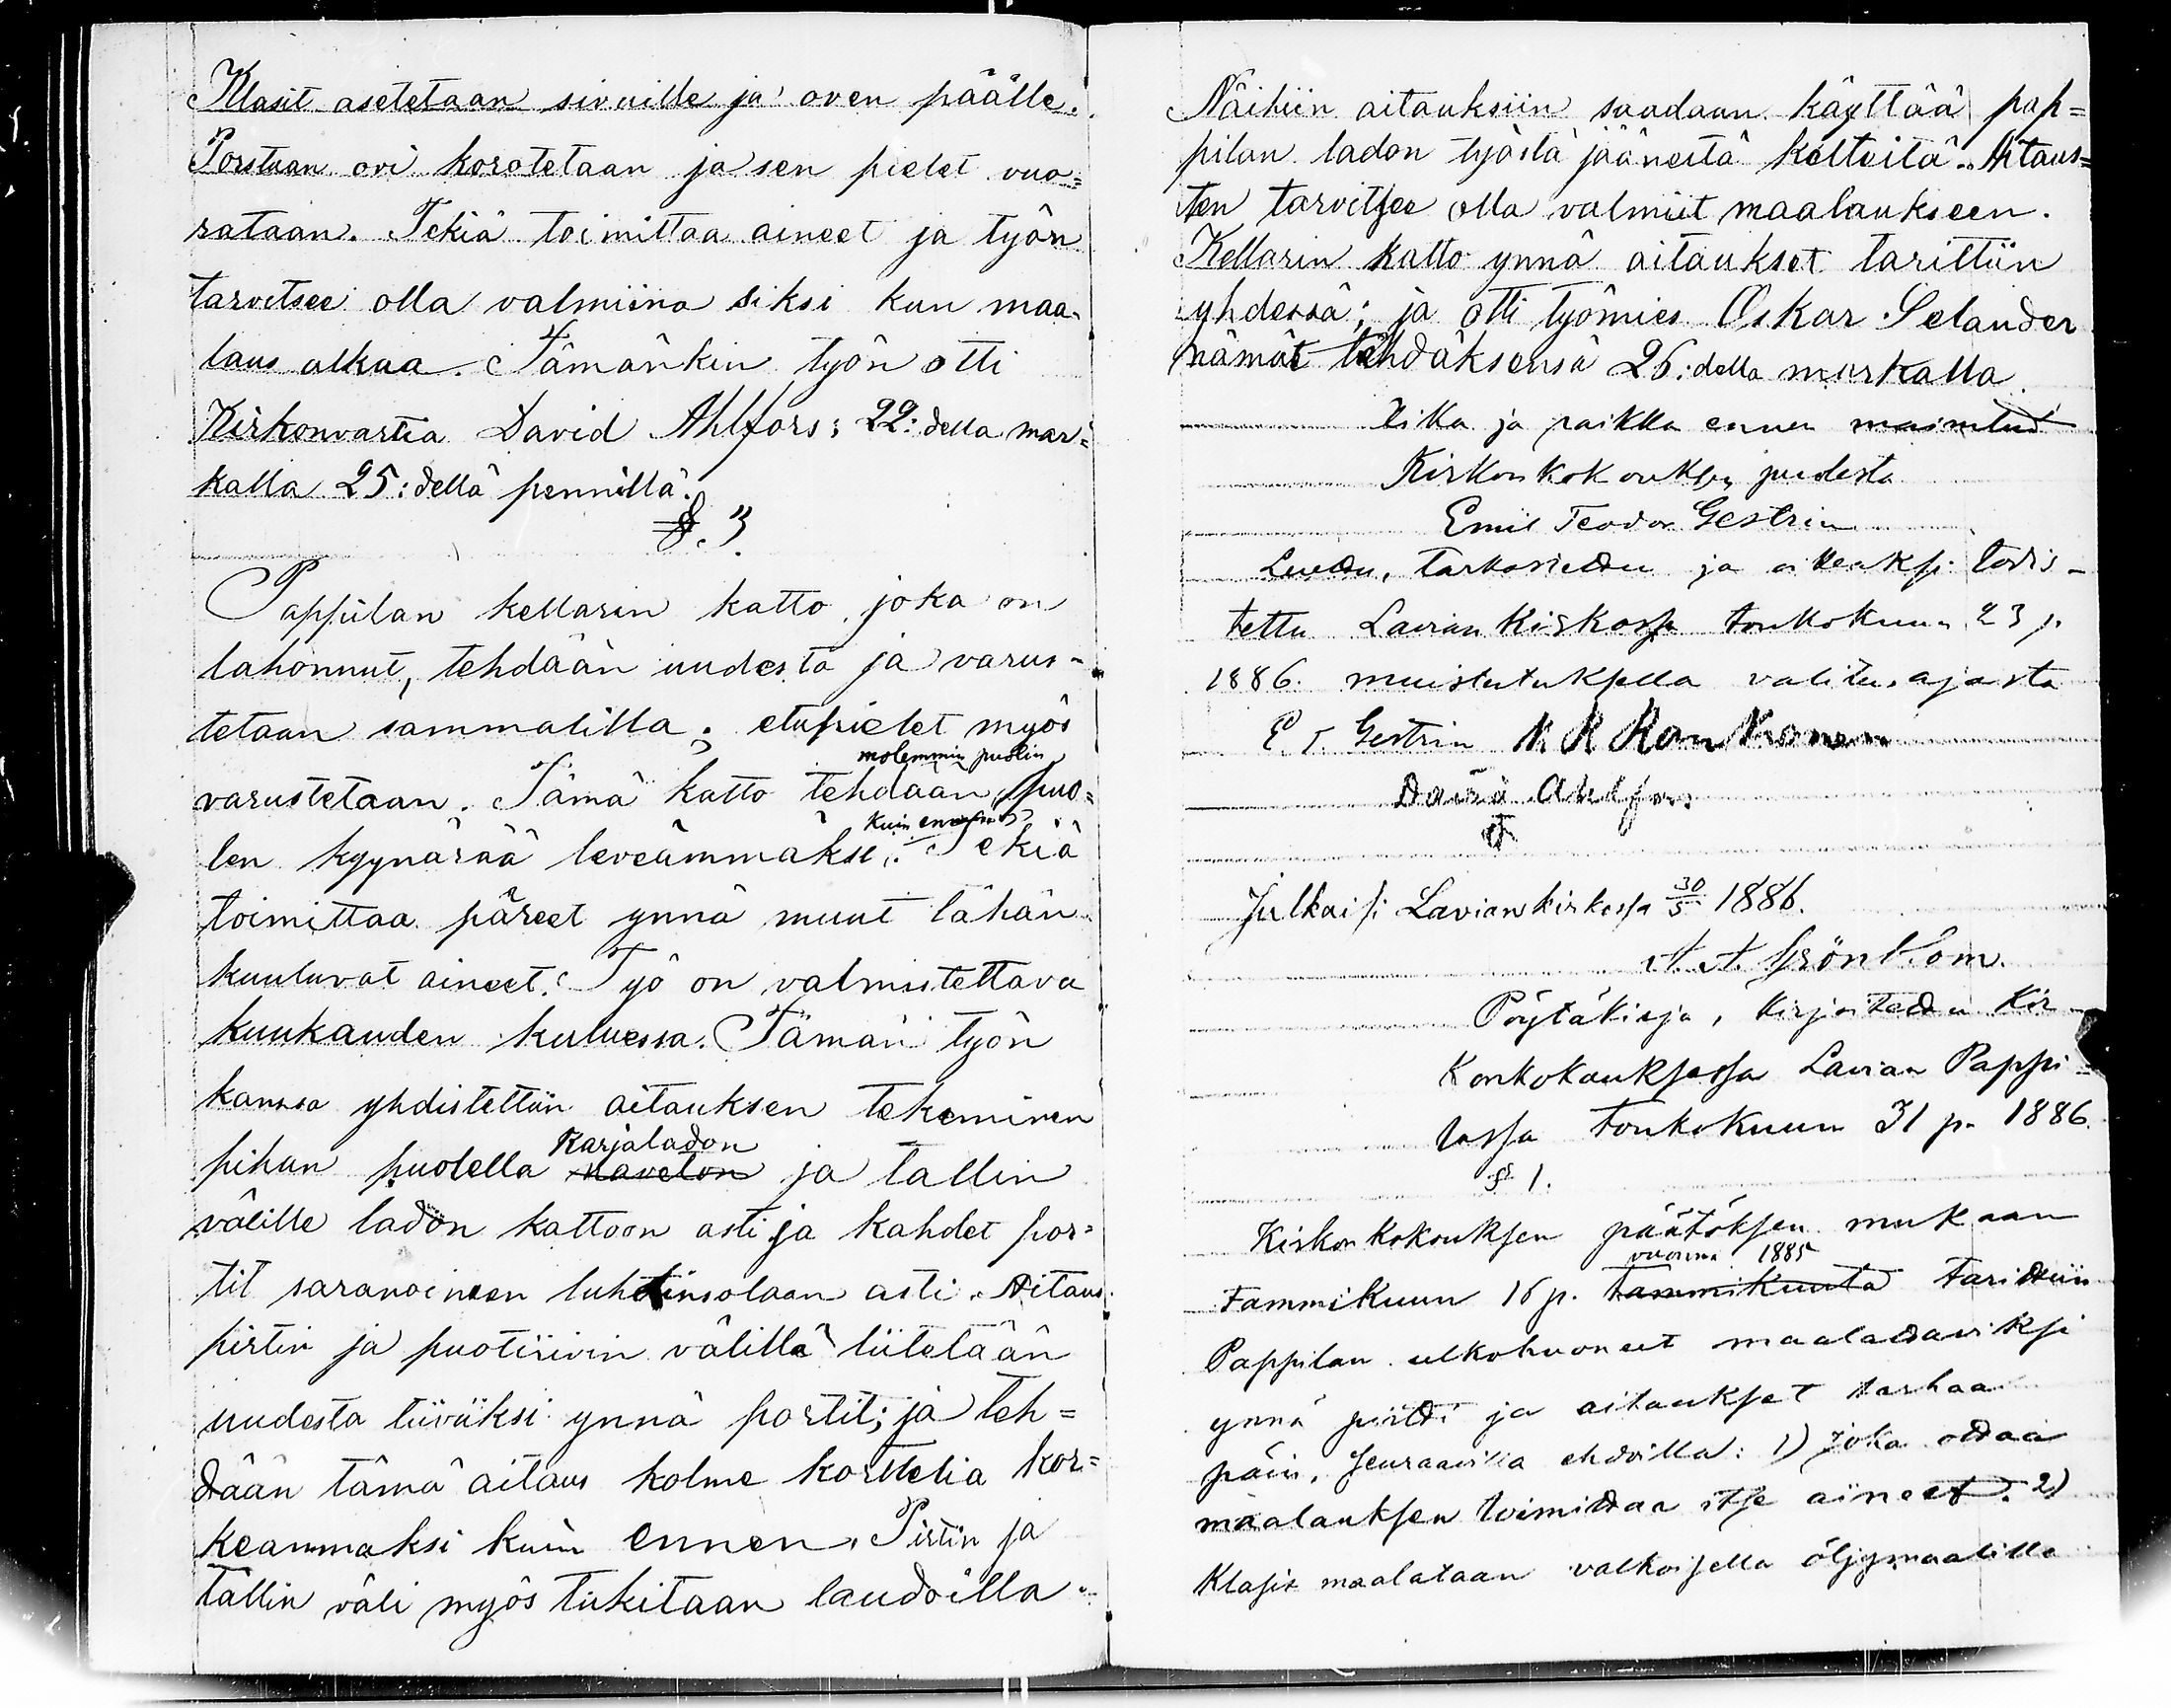 Klasit asetetaan sivuille ja oven päälle.
Porstuan ovi korotetaan ja sen pielet vuo=
rataan. Tekiä toimittaa aineet ja työn
tarvitsee olla valmiina siksi kun maa-
laus alkaa. Tämänkin työn otti
Kirkonvartia David Ahlfors; 22:della mar=
kalla 25:dellä pennillä.
§. 3.
Pappilan kellarin katto, joka on
lahonnut, tehdään uudesta ja varus-
tetaan sammalilla; etupielet myös
molemmin puolin
varustetaan. Tämä katto tehdään, puo=
kuin ennen
len kyynärää leveämmäksi. Tekiä
toimittaa päreet ynnä muut tähän
kuuluvat aineet. Työ on valmistettava
kuukauden kuluessa. Tämän työn
kanssa yhdistettiin aitauksen tekeminen
Karjaladon
pihan puolella naveton ja tallin
välille ladon kattoon asti ja kahdet por=
tit saranoineen luhtinsolaan asti. Aitaus
pirtin ja puotirivin välillä liitetään
uudesta tiiviiksi ynnä portit; ja teh=
dään tämä aitaus kolme korttelia kor=
keammaksi kuin ennen. Pirtin ja
tallin väli myös tukitaan laudoilla.
Näihin aitauksiin saadaan käyttää pap=
pilan ladon työstä jääneitä kelteitä. Aitaus=
ten tarvitsee olla valmiit maalaukseen.
Kellarin katto ynnä aitaukset tarittiin
yhdessä; ja otti työmies Oskar Selander
nämät tehdäksensä 26:della markalla.
Aika ja paikka ennen mainitud
Kirkonkokouksen puolesta
Emil Teodor Gestrin
Luettu, tarkastettu ja oikeaksi todis-
tettu Lavian Kirkossa toukokuun 23 p.
1886. muistutuksella valitus ajasta
E. T. Gestrin K R Rankkonen
David Ahlfors
Julkaisi Lavian kirkossa 30/5 1886.
A. A. Grönblom.
Pöytäkirja, kirjoitettu Kir-
konkokouksessa Lavian Pappi-
lassa toukokuun 31 p. 1886.
§ 1.
Kirkonkokouksen päätöksen mukaan
vuonna 1885
tammikuun 16 p. tammikuuta tarittiin
Pappilan ulkohuoneet maalattaviksi
ynnä pirtti ja aitaukset tarhaa
päin, seuraavilla ehdoilla: 1) Joka ottaa
maalauksen toimittaa itse aineet. 2)
Klasit maalataan valkoisella öljymaalilla